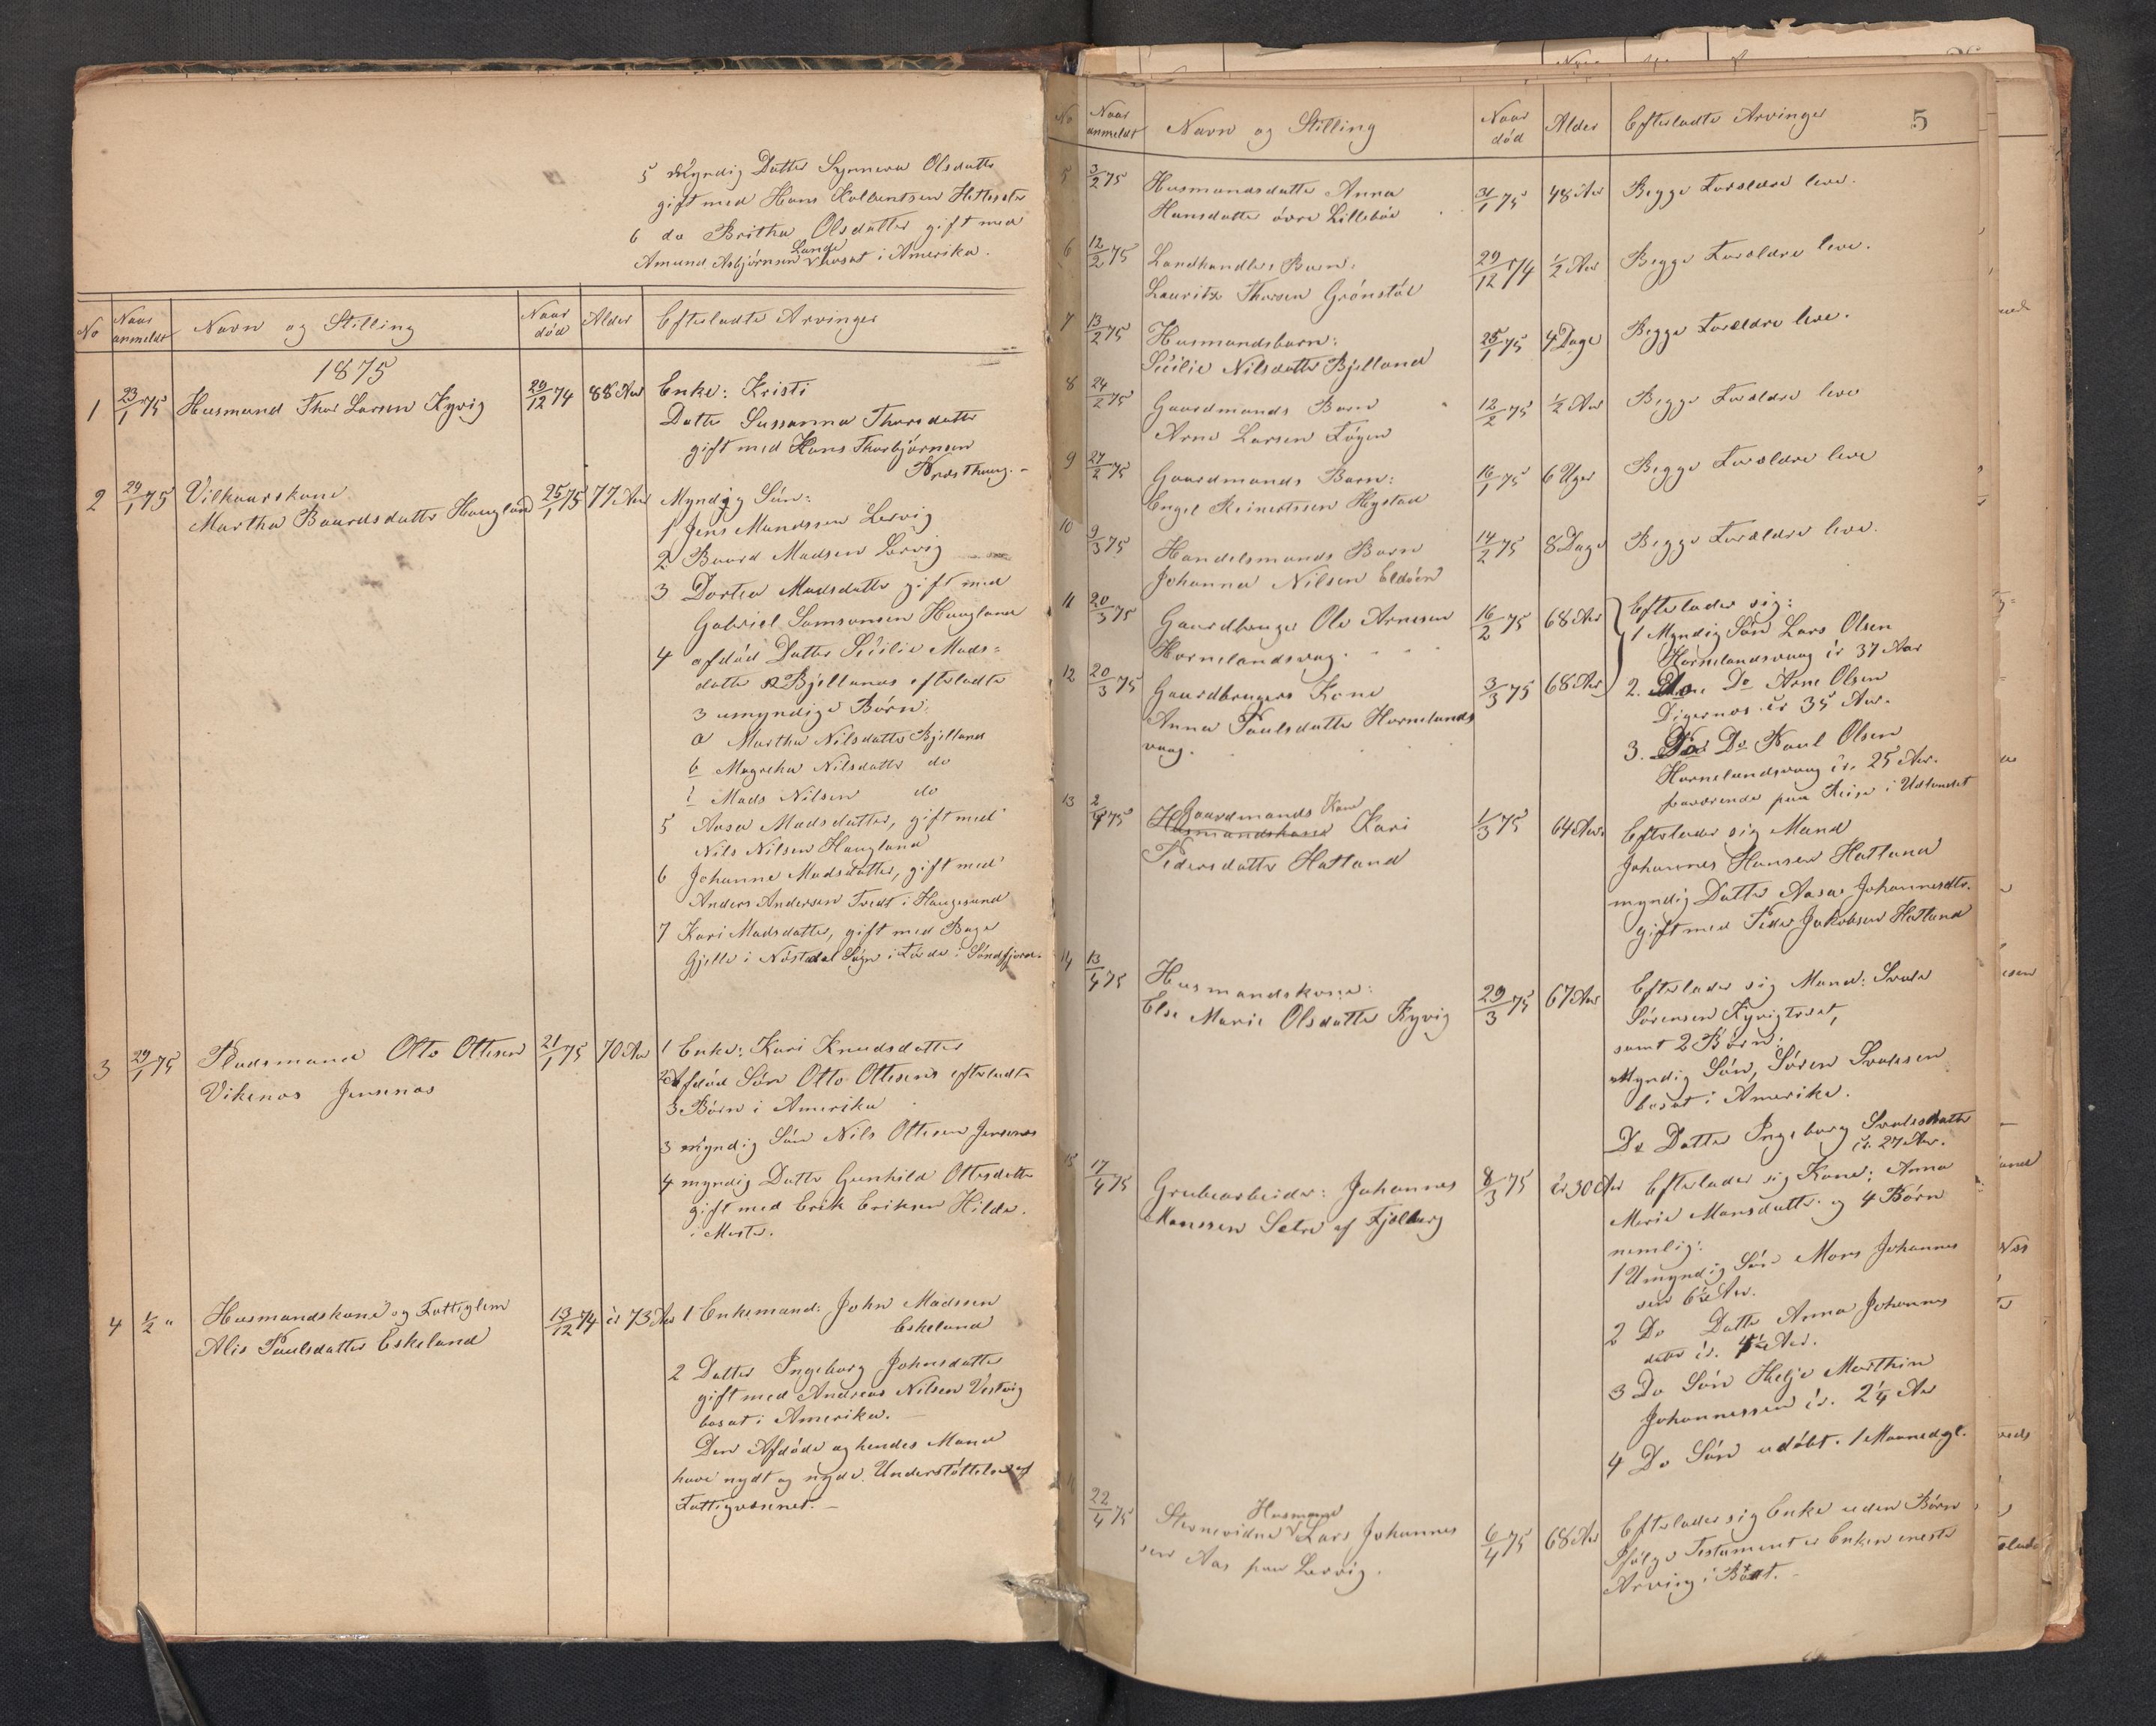 5 Myndig Datter Synneva Olsdatter
gift med Hans Kolbentsen Hetlesæter
6 do Britha Olsdatter gift med
Lange
Amund Asbjørnsen bosat i Amerika.
No
Naar anmeldt
Navn og Stilling
Naar død
Alder
Efterladte Arvinger
1875
1 23/1 75 Husmand Thor Larsen Kyvig 29/12 74 88 Aar Enke: Kristi
Datter Sussanna Thorsdatter
gift med Hans Thorbjørnsen
2 29/1 75 Vilkaarskone 25/1 75 77 Aar Myndig Søn:
Martha Baardsdatter Haugland
1 Jens Mandssen Lervig
2 Baard Madsen Lervig
3 Dortea Madsdatter gift med
Gabriel Samsonsen Haugland
4 afdød Datter Sicilie Mads=
datter Bjellands efterladte
3 umyndige Børn:
a Martha Nilsdatter Bjelland
b Magretha Nilsdatter do
c Mads Nilsen do
5 Aasa Madsdatter, gift med
Nils Nilsen Haugland
6 Johanne Madsdatter, gift med
Anders Andersen Tvedt i Haugesund
7 Kari Madsdatter, gift med Bage
Gjelle i Nøstdal Sogn i Førde i Søndfjord.
3 29/1 75 Pladsmand Otto Ottesen 21/1 75 70 Aar 1 Enke: Kari Knudsdatter
Vikenes Jensenæs
2 Afdød Søn Otto Ottesens efterladte
3 Børn i Amerika
3 myndig Søn Nils Ottesen Jensenæs
4 myndig Datter Gunhild Ottesdatter
gift med Erik Eriksen Hilde.
i Moster.
4 1/2 " Husmandskone og Fattiglem 13/12 74 cr 73 Aar 1 Enkemand: John Madssen
Alis Paulsdatter Eskeland
Eskeland
2 Datter Ingeborg Johnsdatter
gift med Andreas Nilsen Vestvig
bosat i Amerika.
Den Afdøde og hendes Mand
have nydt og nyder Understøttelse af
Fattigvæsenet.
5
No
Naar anmeldt
Navn og Stilling
Naar død
Alder
Efterladte Arvinger
5 3/2 75 Husmandsdatter Anna 31/1 75 48 Aar Begge Forældre leve.
Hansdatter øvre Lillebøe
6 12/2 75 Landhandlers Barn: 29/12 74 1/2 Aar Begge Forældre leve.
Lauritz Thorsen Grønstøl
7 13/2 75 Husmandsbarn: 25/1 75 4 Dage Begge Forældre leve.
Sicilie Nilsdatter Bjelland
8 24/2 75 Gaardmands Barn 12/2 75 1/2 Aar Begge Forældre leve
Arne Larsen Tøgen
9 27/2 75 Gaardmands Barn: 16/1 75 6 Uger Begge Forældre leve
Engel Reinertssen Hystad
10 9/3 75 Handelsmands Barn 14/2 75 8 Dage Begge Forældre leve.
Johanna Nilsen Eldøen
11 20/3 75 Gaardbruger Ole Arnesen 16/2 75 68 Aar Efterlader sig:
Hornelandsvaag.
1 Myndig Søn Lars Olsen
Hornelandsvaag cr 37 Aar
12 20/3 75 Gaardbrugers Kone 3/3 75 68 Aar 2. Do Do Arne Olsen
Anna Paulsdatter Hornelands
vaag.
Digernæs cr 35 Aar.
3. Do Do Paul Olsen
Hornelandsvaag cr. 25 Aar.
fraværende paa Reise i Udlandet
13 2/4 75 Gaardmands Kone
Husmandskone Kari 1/3 75 64 Aar Efterlader sig Mand
Pedersdatter Hatland
Johannes Hansen Hatland
myndig Datter Aasa Johannesdtr.
gift med Peder Jakobsen Hatland
14 13/4 75 Husmandskone: 29/3 75 67 Aar Efterlader sig Mand: Svale
Else Marie Olsdatter Kyvig
Sørensen Kyvigtræet,
samt 2 Børn:
Myndig Søn, Søren Svalesen
bosat i Amerika.
Do Datter Ingeborg Svalesdatter
cr. 27 Aar.
15 17/4 75 Grubearbeider: Johannes 8/3 75 cr 30 Aar Efterlader sig Kone: Anna
Monssen Setre af Fjelberg
Marie Monsdatter og 4 Børn
nemlig:
1 Umyndig Søn Mons Johannes
sen 6 1/2 Aar.
2 Do Datter Anna Johannes
datter cr. 4 1/2 Aar.
3 Do Søn Helje Marthin
Johannessen cr. 2 1/4 Aar
4 Do Søn udøbt. 1 Maaned gl.
22/4 75 Husmand
Stevnevidne Lars Johannes 6/4 75 68 Aar Efterlader sig Enke uden Børn
sen Aas paa Lervig.
Ifølge Testament er Enken eneste
Arving i Boet.